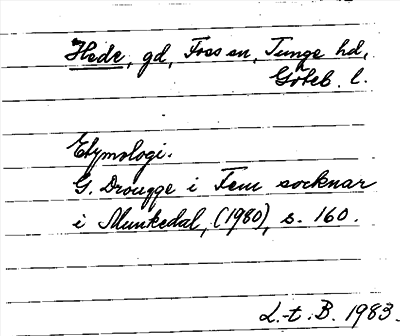 Hede, gd, Foss sn, Tunge hd,
Göteb. l.
Etymologi.
G. Drougge i Fem socknar
i Munkedal, (1980), s. 160.
L.-t. B. 1983.